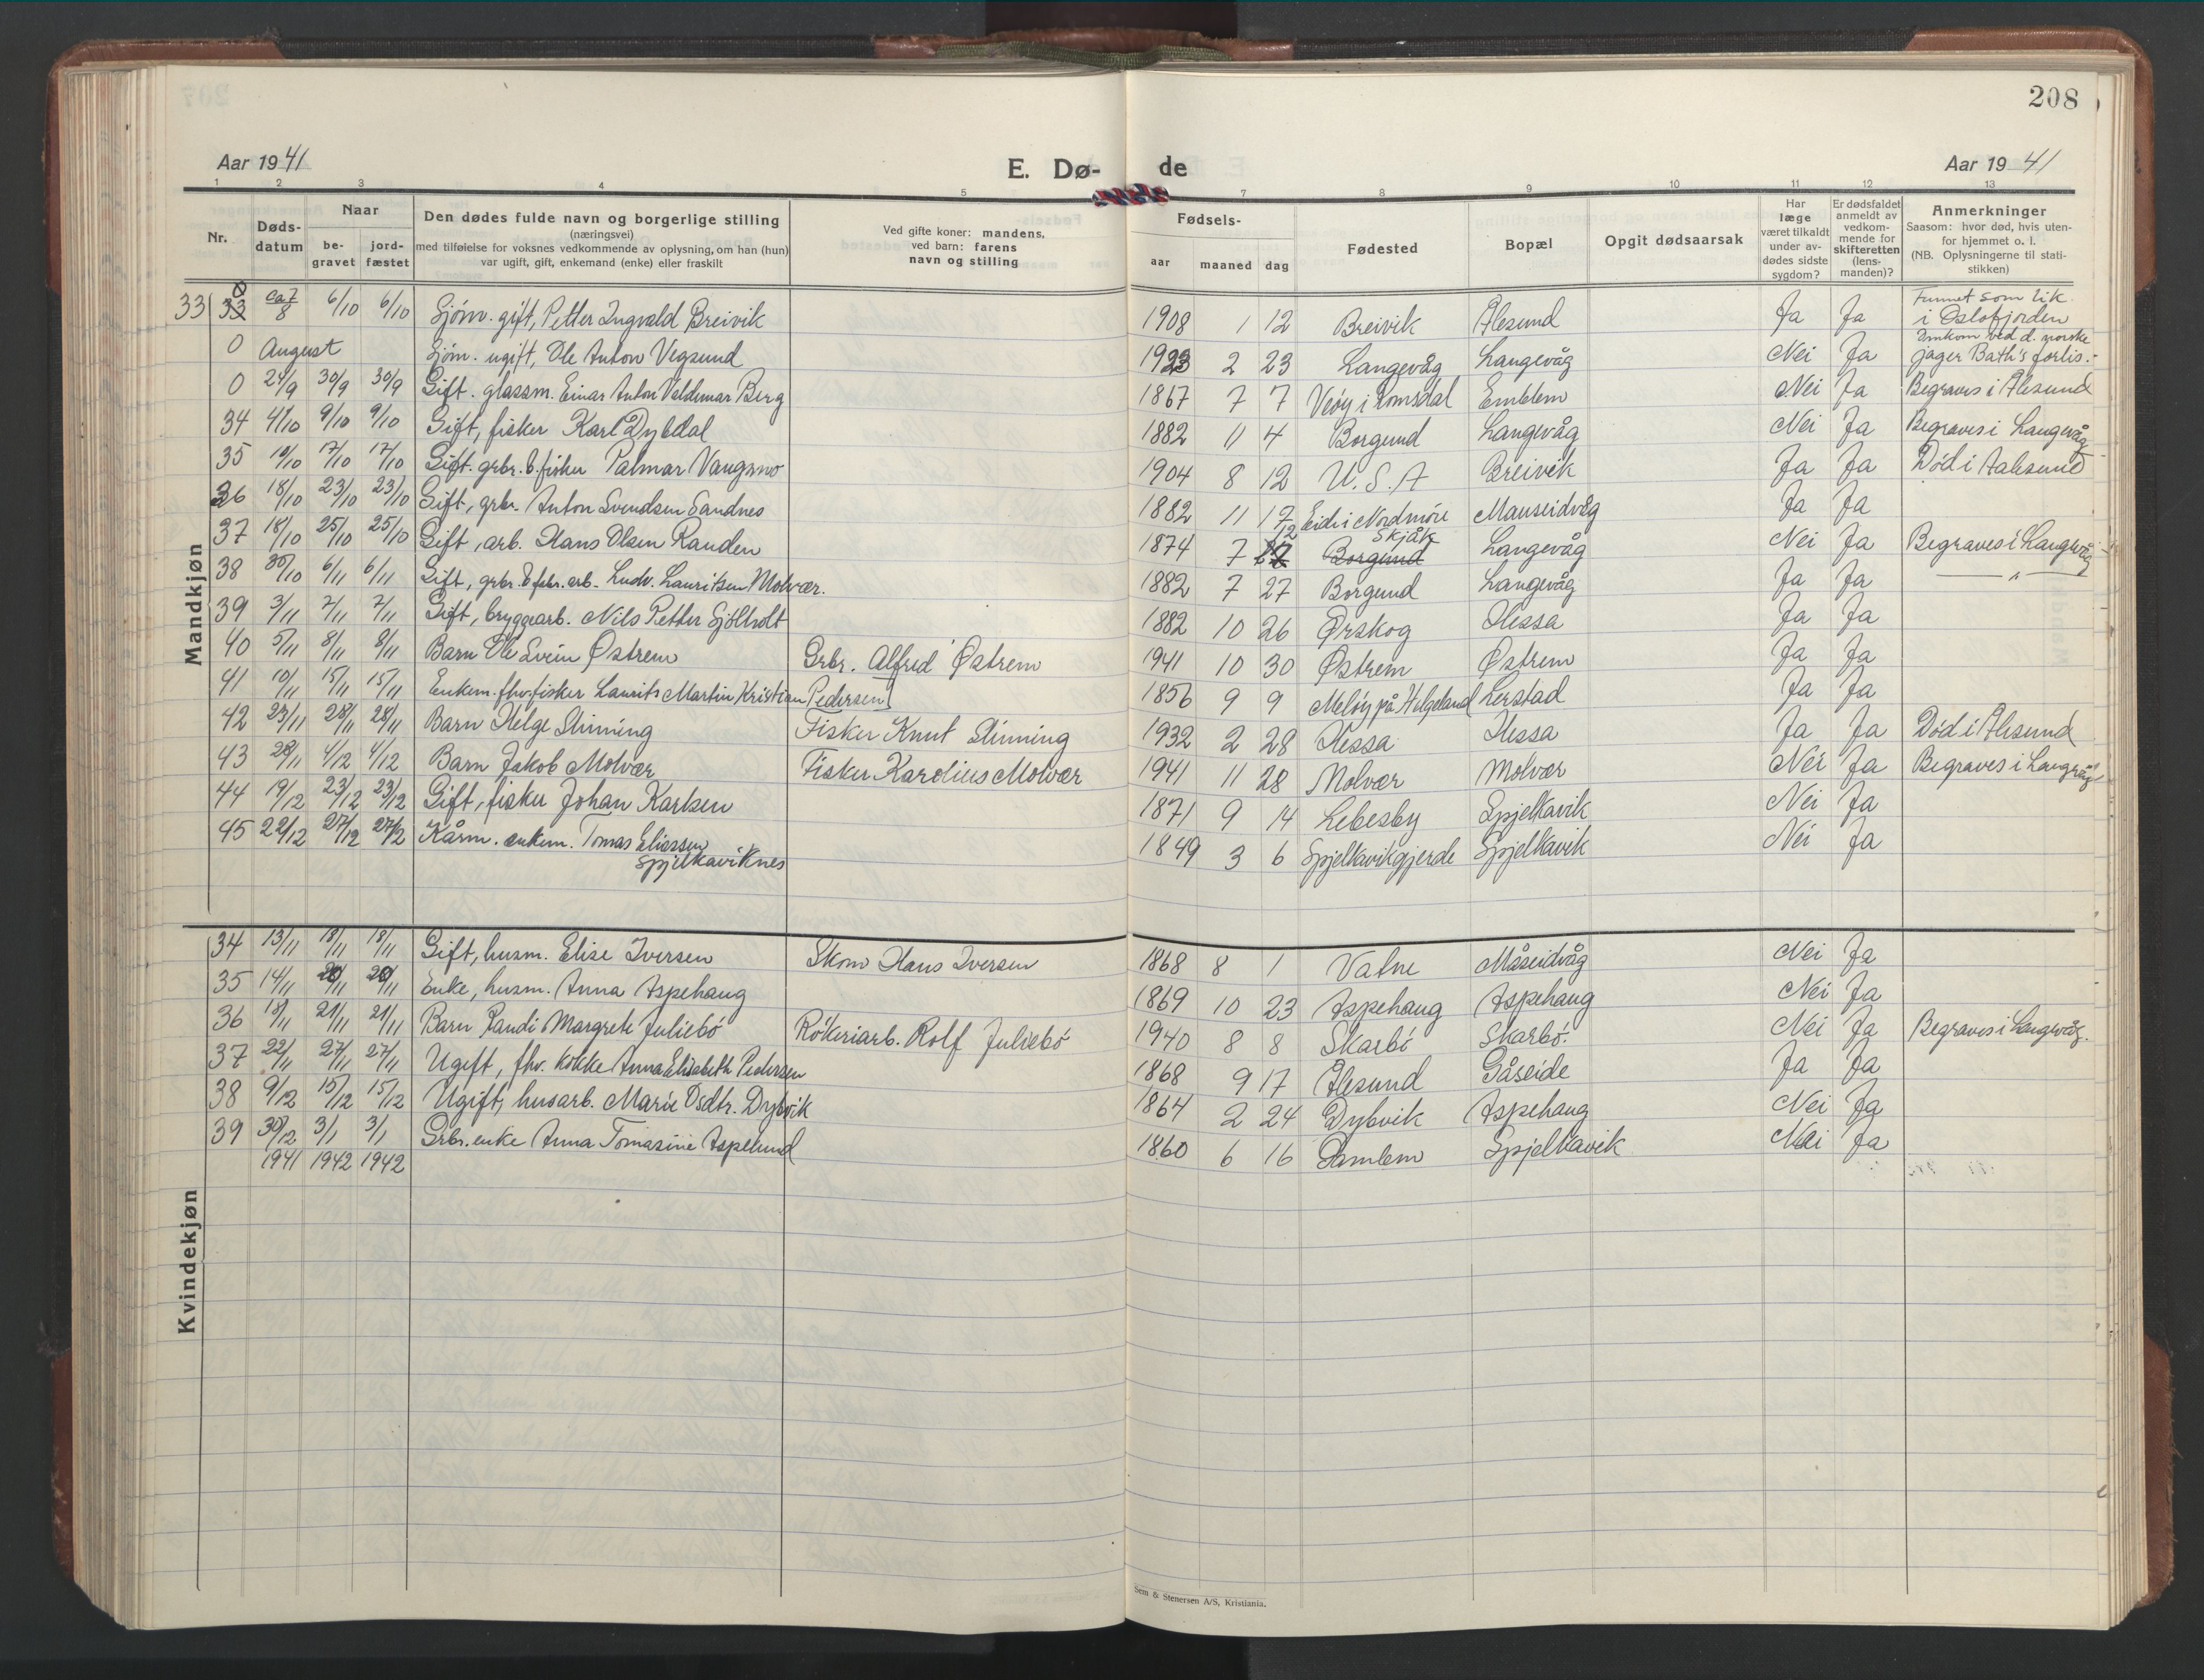 208
Aar 1941 E. Dø- de Aar 1941
1 2 3 4 5 7 8 9 10 11 12 13
Nr.
Døds-
datum
Naar
be-
gravet
jord-
fæstet
Den dødes fulde navn og borgerlige stilling
(næringsvei)
med tilføielse for voksnes vedkommende av oplysning, om han (hun)
var ugift, gift, enkemand (enke) eller fraskilt
Ved gifte koner: mandens,
ved barn: farens
navn og stilling
Fødsels-
aar maaned dag
Fødested
Bopæl
Opgit dødsaarsak
Har
læge
været tilkaldt
under av-
dødes sidste
sygdom?
Er dødsfaldet
anmeldt av
vedkom-
mende for
skifteretten
(lens-
manden)?
Anmerkninger
Saasom: hvor død, hvis uten-
for hjemmet o. l.
(NB. Oplysningerne til stati-
stikken)
Mandkjøn
33 33 0 ca 7/8 6/10 6/10 Sjøm. gift, Petter Ingvald Breivik 1908 1 12 Breivik Ålesund Ja Ja Funnet som lik i Oslofjorden
0 August Sjøm. ugift, Ole Anton Vegsund 1923 2 23 Langevåg Langevåg Nei Ja Omkom ved d. norske jager Bath's forlis.-
0 24/9 30/9 30/9 Gift. glassm. Einar Anton Valdemar Berg 1867 7 7 Veøy i Romsdal Emblem Nei Ja Begraves i Ålesund
34 4/10 9/10 9/10 Gift, fisker Karl Dybdal 1882 11 4 Borgund Langevåg Nei Ja Begraves i Langevåg
35 10/10 17/10 17/10 Gift. grbr. & fisker Palmar Vangsmo 1904 8 12 U.S.A Breivik Ja Ja Død i Aalesund
36 18/10 23/10 23/10 Gift, grbr. Anton Svendsen Sandnes 1882 11 17 Eide i Nordmøre Mauseidvåg Ja Ja
37 18/10 25/10 25/10 Gift, arb. Hans Olsen Randen 1874 7 12 Skjåk Borgund Langevåg Nei Ja Begraves i Langevåg
38 30/10 6/11 6/11 Gift, grbr. & febr. arb. Ludv. Lauritsen Molvær. 1882 7 27 Borgund Langevåg Ja Ja — " —
39 3/11 7/11 7/11 Gift, bryggearb. Nils Petter Sjøholt 1882 10 26 Ørskog Hessa Ja Ja
40 5/11 8/11 8/11 Barn Ole Svein Østrem Grbr. Alfred Østrem 1941 10 30 Østrem Østrem Ja Ja
41 10/11 15/11 15/11 Enkem. fhv. fisker Laurits Martin Kristian Pedersen 1856 9 9 Meløy på Helgeland Lerstad Ja Ja
42 23/11 28/11 28/11 Barn Helge Slinning Fisker Knut Slinning 1932 2 28 Hessa Hessa Ja Ja Død i Ålesund
43 28/11 4/12 4/12 Barn Jakob Molvær Fisker Karolius Molvær 1941 11 28 Molvær Molvær Nei Ja Begraves i Langevåg
44 19/12 23/12 23/12 Gift, fisker Johan Karlsen 1871 9 14 Lebesby Spjelkavik Nei Ja
45 22/12 27/12 27/2 Kårm. enkem. Tomas Eliassen 1849 3 6 Spjelkavikgjerde Spjelkavik Nei Ja
Spjelkaviknes
Kvindekjøn
34 13/11 18/11 18/11 Gift, husm. Elise Iversen Skom Hans Iversen 1868 8 1 Vatne Måseidvåg Nei Ja
35 14/11 20/11 20/11 Enke, husm. Anna Aspehaug 1869 10 23 Aspehaug Aspehaug Nei Ja
36 18/11 21/11 21/11 Barn Randi Margrete Juliebø Røkeriarb. Rolf Juliebø 1940 8 8 Skarbø Skarbø. Nei Ja Begraves i Langevåg.
37 22/11 27/11 27/11 Ugift, fhv. kokke Anna Elisabeth Pedersen 1868 9 17 Ålesund Gåseide Ja Ja
38 9/12 15/12 15/12 Ugift, husarb. Marie Osdtr. Dybvik 1864 2 24 Dybvik Aspehaug Nei Ja
39 30/12 3/1 3/1 Grbr. enke Anna Tomasine Aspelund 1860 6 16 Gamlem Spjelkavik Nei Ja
1941 1942 1942
Sem & Stenersen A/S, Kristiania.